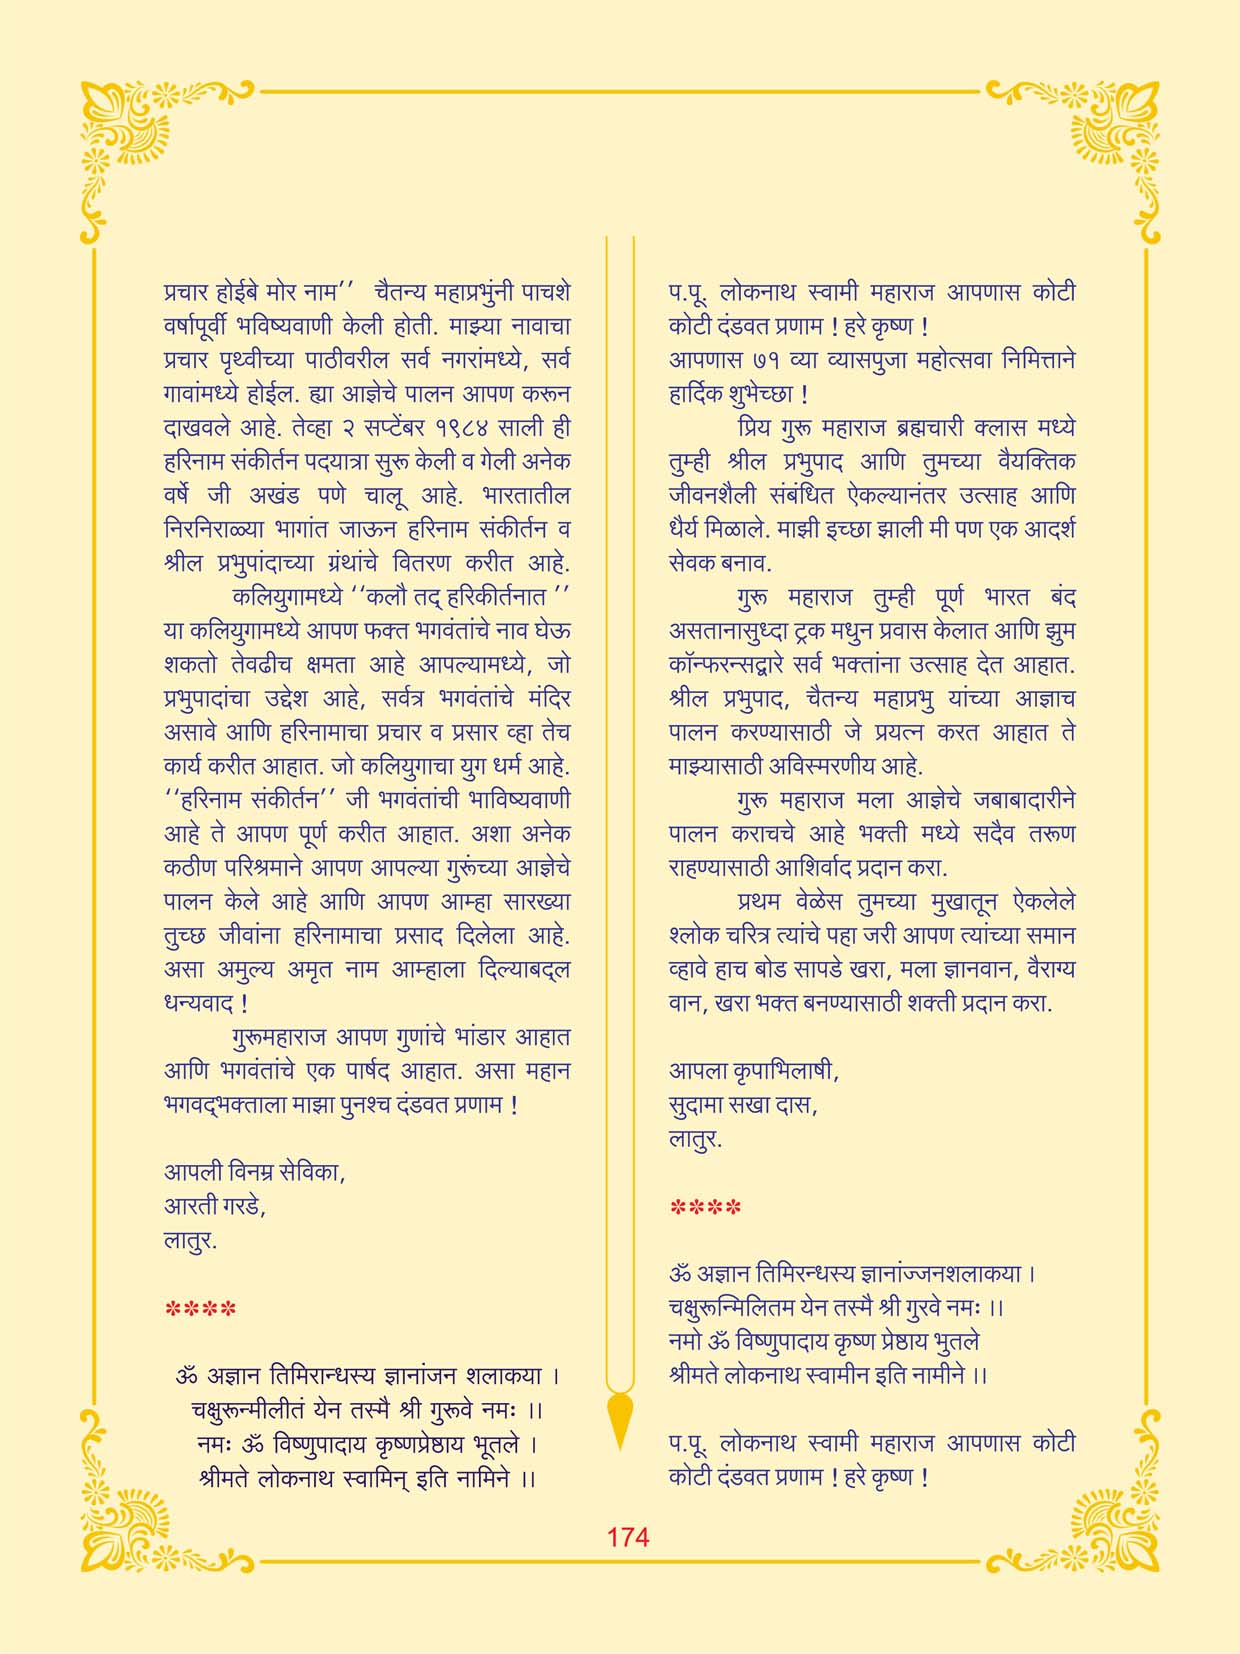 प्रचार होईबे मोर नाम’’ चैतन्य महाप्रभुंनी पाचशे
वर्षापूर्वी भविष्यवाणी केली होती. माझ्या नावाचा
प्रचार पृथ्वीच्या पाठीवरील सर्व नगरांमध्ये, सर्व
गावांमध्ये होईल. ह्या आज्ञेचे पालन आपण करून
दाखवले आहे. तेव्हा २ सप्टेंबर १९८४ साली ही
हरिनाम संकीर्तन पदयात्रा सुरू केली व गेली अनेक
वर्षे जी अखंड पणे चालू आहे. भारतातील
निरनिराळ्या भागांत जाऊन हरिनाम संकीर्तन व
श्रील प्रभुपांदाच्या ग्रंथांचे वितरण करीत आहे.
कलियुगामध्ये ‘‘कलौ तद् हरिकीर्तनात ’’
या कलियुगामध्ये आपण फक्त भगवंतांचे नाव घेऊ
शकतो तेवढीच क्षमता आहे आपल्यामध्ये, जो
प्रभुपादांचा उद्देश आहे, सर्वत्र भगवंतांचे मंदिर
असावे आणि हरिनामाचा प्रचार व प्रसार व्हा तेच
कार्य करीत आहात. जो कलियुगाचा युग धर्म आहे.
‘‘हरिनाम संकीर्तन’’ जी भगवंतांची भाविष्यवाणी
आहे ते आपण पूर्ण करीत आहात. अशा अनेक
कठीण परिश्रमाने आपण आपल्या गुरूंच्या आज्ञेचे
पालन केले आहे आणि आपण आम्हा सारख्या
तुच्छ जीवांना हरिनामाचा प्रसाद दिलेला आहे.
असा अमुल्य अमृत नाम आम्हाला दिल्याबद्ल
धन्यवाद !
गुरूमहाराज आपण गुणांचे भांडार आहात
आणि भगवंतांचे एक पार्षद आहात. असा महान
भगवद्‌भक्ताला माझा पुनश्च दंडवत प्रणाम !
आपली विनम्र सेविका,
आरती गरडे,
लातुर.
****
ॐ अज्ञान तिमिरान्धस्य ज्ञानांजन शलाकया ।
चक्षुरून्मीलीतं येन तस्मै श्री गुरूवे नमः ।।
नमः ॐ विष्णुपादाय कृष्णप्रेष्ठाय भूतले ।
श्रीमते लोकनाथ स्वामिन् इति नामिने ।।
प.पू. लोकनाथ स्वामी महाराज आपणास कोटी
कोटी दंडवत प्रणाम ! हरे कृष्ण !
आपणास ७१ व्या व्यासपुजा महोत्सवा निमित्ताने
हार्दिक शुभेच्छा !
प्रिय गुरू महाराज ब्रह्मचारी क्लास मध्ये
तुम्ही श्रील प्रभुपाद आणि तुमच्या वैयक्तिक
जीवनशैली संबंधित ऐकल्यानंतर उत्साह आणि
धैर्य मिळाले. माझी इच्छा झाली मी पण एक आदर्श
सेवक बनाव.
गुरू महाराज तुम्ही पूर्ण भारत बंद
असतानासुध्दा ट्रक मधुन प्रवास केलात आणि झुम
कॉन्फरन्सद्वारे सर्व भक्तांना उत्साह देत आहात.
श्रील प्रभुपाद, चैतन्य महाप्रभु यांच्या आज्ञाच
पालन करण्यासाठी जे प्रयत्न करत आहात ते
माझ्यासाठी अविस्मरणीय आहे.
गुरू महाराज मला आज्ञेचे जबाबादारीने
पालन कराचचे आहे भक्ती मध्ये सदैव तरूण
राहण्यासाठी आशिर्वाद प्रदान करा.
प्रथम वेळेस तुमच्या मुखातून ऐकलेले
श्लोक चरित्र त्यांचे पहा जरी आपण त्यांच्या समान
व्हावे हाच बोड सापडे खरा, मला ज्ञानवान, वैराग्य
वान, खरा भक्त बनण्यासाठी शक्ती प्रदान करा.
आपला कृपाभिलाषी,
सुदामा सखा दास,
लातुर.
****
ॐ अज्ञान तिमिरन्धस्य ज्ञानांज्जनशलाकया ।
चक्षुरून्मिलितम येन तस्मै श्री गुरवे नमः ।।
नमो ॐ विष्णुपादाय कृष्ण प्रेष्ठाय भुतले
श्रीमते लोकनाथ स्वामीन इति नामीने ।।
प.पू. लोकनाथ स्वामी महाराज आपणास कोटी
कोटी दंडवत प्रणाम ! हरे कृष्ण !
174